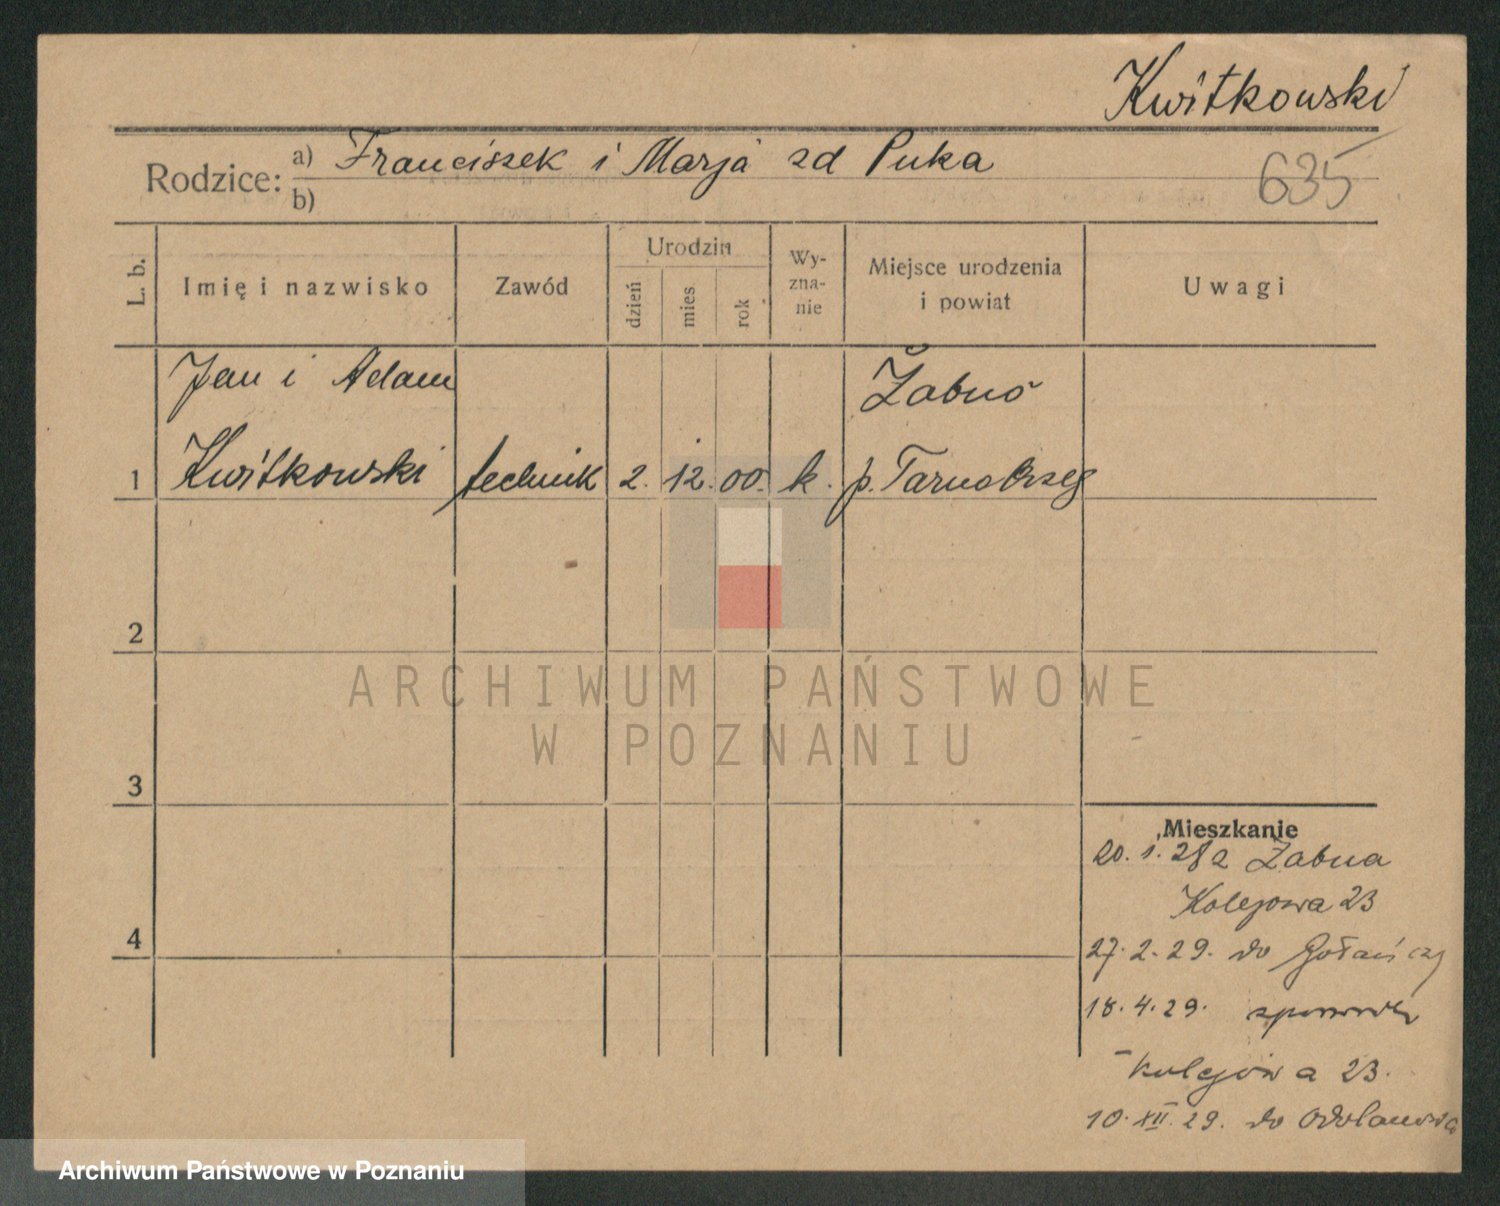 Kwitkowski
Rodzice: a) Franciszek i Marja zd Puka
b)
635
L. b.
Imię i nazwisko
Zawód
Urodzin
dzień
mies
rok
Wy-
zna-
nie
Miejsce urodzenia
i powiat
Uwagi
Jan i Adam
Żabno
1 Kwitkowski technik 2. 12. 00. k. p. Tarnobrzeg
2
ARCHIWUM PAŃSTWOWE
W POZNANIU
3
Mieszkanie
20. 1. 28 z Żabna
Kolejowa 23
4
27. 2. 29. do Gołańczy
18. 4. 29. spowrotem
Kolejowa 23.
10. XII. 29. do Odolanowa
Archiwum Państwowe w Poznaniu